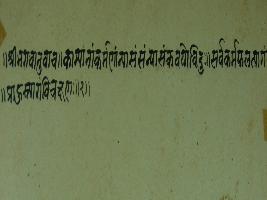 ॥श्रीभगवानुवाच॥काम्यानांकर्मणांन्यासंसंन्यासंकवयोविदुः॥सर्वकर्मफलत्यागं
॥प्राहुस्त्यागंविचक्षणाः॥२॥